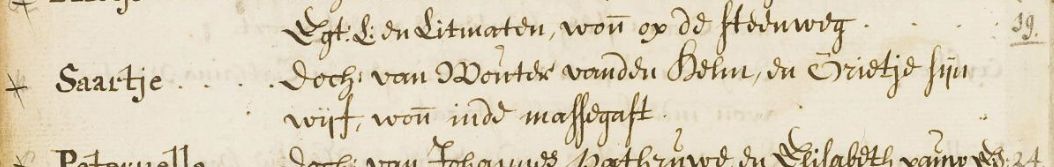 Egt: L: en Litmaten, woñ op de steenweg . . . 19.
Saartje . . . . . doch: van Wouter vanden Helm, en Grietje sijn
wijf, woñ inde massegast.
Peternelle doch: van Johannes en Elisabeth 24